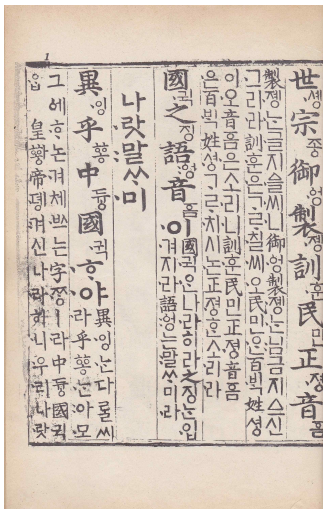 1
世솅宗조ᇰ御ᅌᅥᆼ製졩訓훈民민正져ᇰ音ᅙᅳᆷ
製졩ᄂᆞᆫ글지ᅀᅳᆯ씨니御ᅌᅥᆼ製졩ᄂᆞᆫ님금지ᅀᅳ샨
그리라訓훈은ᄀᆞᄅᆞ칠씨오民민ᄋᆞᆫ百ᄇᆡᆨ姓셔ᇰ
이오音ᅙᅳᆷ은소리니訓훈民민正져ᇰ音ᅙᅳᆷ
은百ᄇᆡᆨ姓셔ᇰᄀᆞᄅᆞ치시논正져ᇰᄒᆞᆫ소리라
國귁之징語ᅌᅥᆼ音ᅙᅳᆷ이
國귁ᄋᆞᆫ나라히라之징ᄂᆞᆫ입
겨지라語ᅌᅥᆼ는말ᄊᆞ미라
나랏말ᄊᆞ미
異잉乎ᅘᅩᆼ中듀ᇰ國귁ᄒᆞ야
異잉ᄂᆞᆫ다ᄅᆞᆯ씨
라乎ᅘᅩᆼᄂᆞᆫ아모
그ᅌᅦᄒᆞ논겨체ᄡᅳ는字ᄍᆞᆼㅣ라中듀ᇰ國귁
ᄋᆞᆫ皇ᅘᅪᇰ帝뎽겨신나라히니우리나랏